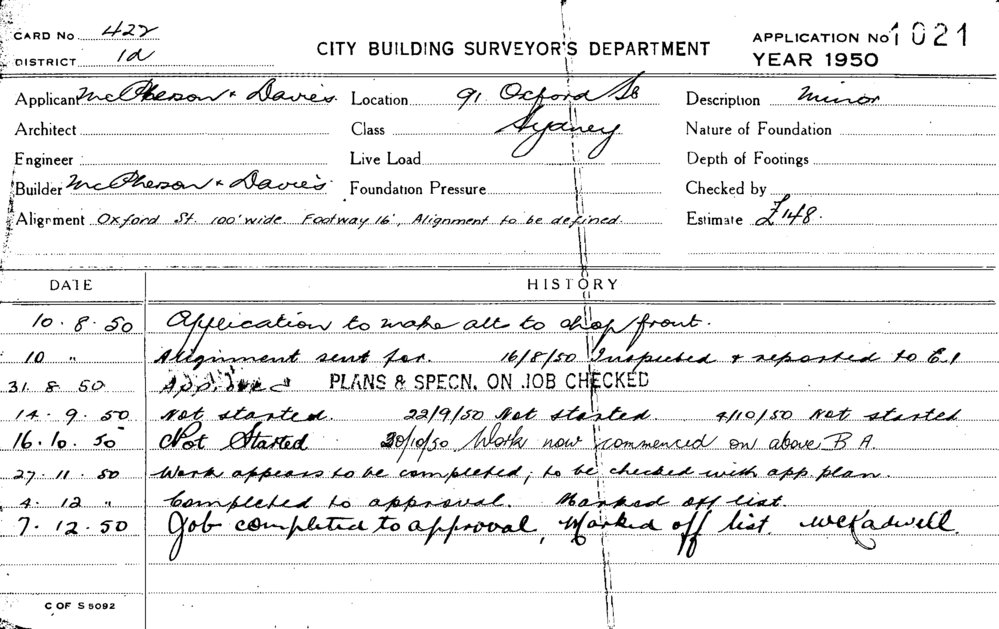 CARD No 422
DISTRICT 1d
CITY BUILDING SURVEYOR'S DEPARTMENT
APPLICATION No 1021
YEAR 1950
Applicant McPherson + Davies Location 91 Oxford St Description Minor
Architect Class Sydney Nature of Foundation
Engineer Live Load Depth of Footings
Builder McPherson + Davies Foundation Pressure Checked by
Alignment Oxford St. 100' wide. Footway 16', Alignment to be defined. Estimate £148.
DATE HISTORY
10.8.50 Application to make alt to shop front.
10 " Alignment sent for. 16/8/50 Inspected + reported to E.1
31.8.50 Approved PLANS & SPECN. ON JOB CHECKED
14.9.50 Not started. 22/9/50 Not started. 4/10/50 Not started
16.10.50 Not Started 30/10/50 Work now commenced on above B A.
27.11.50 Work appears to be completed; to be checked with app. plan.
4.12 " Completed to approval. Marked off list.
7.12.50 Job completed to approval, Marked off list.
C OF S 5092